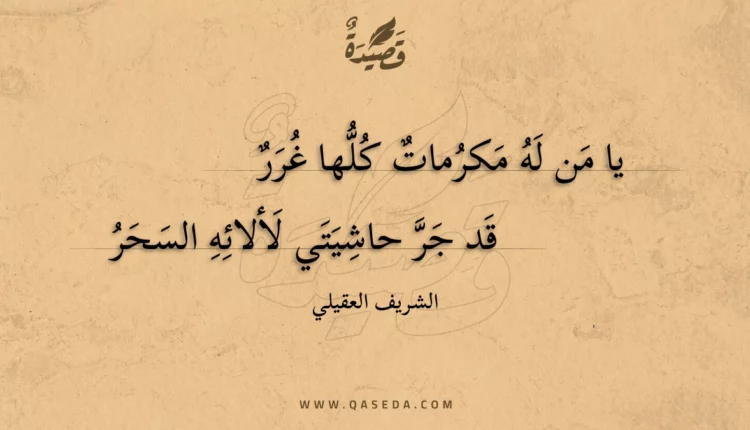 قَصِيْدَةٌ
يا مَن لَهُ مَكرُماتٌ كُلُّها غُرَرٌ
قَد جَرَّ حاشِيَتَي لَألائِهِ السَحَرُ
الشريف العقيلي
WWW.QASEDA.COM